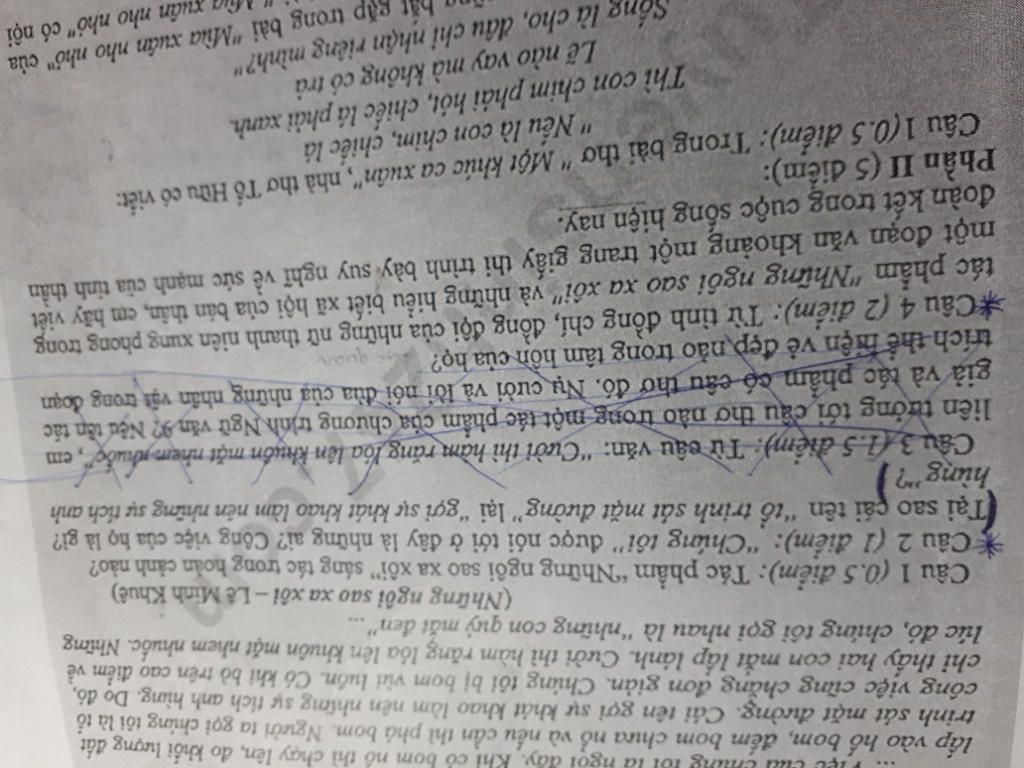 ... Việc của chúng tôi là ngồi đây. Khi có bom nổ thì chạy lên, đo khối lượng đất
lấp vào hố bom, đếm bom chưa nổ và nếu cần thì phá bom. Người ta gọi chúng tôi là tổ
trinh sát mặt đường. Cái tên gợi sự khát khao làm nên những sự tích anh hùng. Do đó,
công việc cũng chẳng đơn giản. Chúng tôi bị bom vùi luôn. Có khi bò trên cao điểm về
chỉ thấy hai con mắt lấp lánh. Cười thì hàm răng lóa lên khuôn mặt nhem nhuốc. Những
lúc đó, chúng tôi gọi nhau là "những con quỷ mắt đen"...
(Những ngôi sao xa xôi – Lê Minh Khuê)
Câu 1 (0.5 điểm): Tác phẩm "Những ngôi sao xa xôi" sáng tác trong hoàn cảnh nào?
Câu 2 (1 điểm): "Chúng tôi" được nói tới ở đây là những ai? Công việc của họ là gì?
Tại sao cái tên "tổ trinh sát mặt đường" lại "gợi sự khát khao làm nên những sự tích anh
hùng"?
Câu 3 (1.5 điểm): Từ câu văn: "Cười thì hàm răng lóa lên khuôn mặt nhem nhuốc", em
liên tưởng tới câu thơ nào trong một tác phẩm của chương trình Ngữ văn 9? Nêu tên tác
giả và tác phẩm có câu thơ đó. Nụ cười và lời nói đùa của những nhân vật trong đoạn
trích thể hiện vẻ đẹp nào trong tâm hồn của họ?
Câu 4 (2 điểm): Từ tình đồng chí, đồng đội của những nữ thanh niên xung phong trong
tác phẩm "Những ngôi sao xa xôi" và những hiểu biết xã hội của bản thân, em hãy viết
một đoạn văn khoảng một trang giấy thi trình bày suy nghĩ về sức mạnh của tinh thần
đoàn kết trong cuộc sống hiện nay.
Phần II (5 điểm):
Câu 1(0.5 điểm): Trong bài thơ " Một khúc ca xuân", nhà thơ Tố Hữu có viết:
" Nếu là con chim, chiếc lá
Thì con chim phải hót, chiếc lá phải xanh.
Lẽ nào vay mà không có trả
Sống là cho, đâu chỉ nhận riêng mình?"
bắt gặp trong bài "Mùa xuân nho nhỏ" của
"Mùa xuân nho nhỏ" có nội